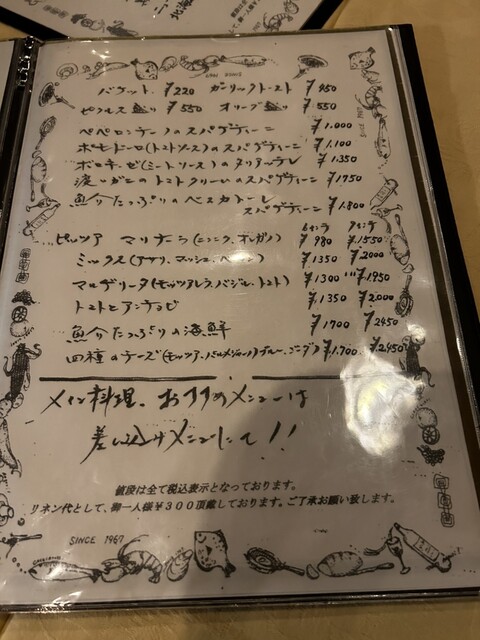 バケット ¥220 ガーリックトースト ¥450
ピクルス盛り ¥550 オリーブ盛り ¥550
ペペロンチーノのスパゲティーニ ¥1.000
ポモドーロ(トマトソース)のスパゲティーニ ¥1.100
ボロネーゼ(ミートソース)のタリアッテレ ¥1.350
渡りガニのトマトクリームのスパゲティーニ ¥1750
魚介たっぷりのペスカトーレ
スパゲティーニ ¥1.800
ピッツァ マリナーラ(ニンニク、オレガノ) ¥980 ¥1550
ミックス(サラミ、マッシュ、ベーコン) ¥1350 ¥2000
マルゲリータ(モッツァレラ、バジル、トマト) ¥1300 ¥1950
トマトとアンチョビ ¥1350 ¥2.000
魚介たっぷりの海鮮 ¥1700 ¥2450
四種のチーズ(モッツァ、パルメジャーノ、ブルー、ゴーダ) ¥1.700 ¥2450
メイン料理、おすすめメニューは
差し込みメニューにて!!
値段は全て税込表示となっております。
リネン代として、御一人様¥300頂戴しております。ご了承お願い致します。
SINCE 1967